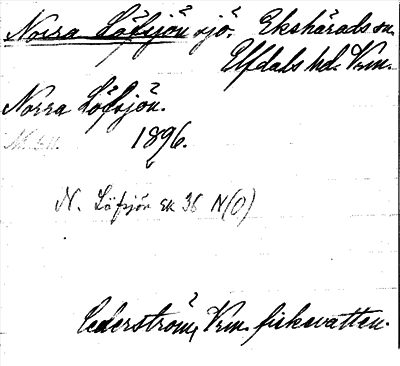 Norra Löfsjön sjö. Ekshärads sn.
Elfdals hd. Vrm.
Norra Löfsjön.
1896.
N. Löfsjön ek 36 N(O)
Cederström, Vrm. fiskevatten.